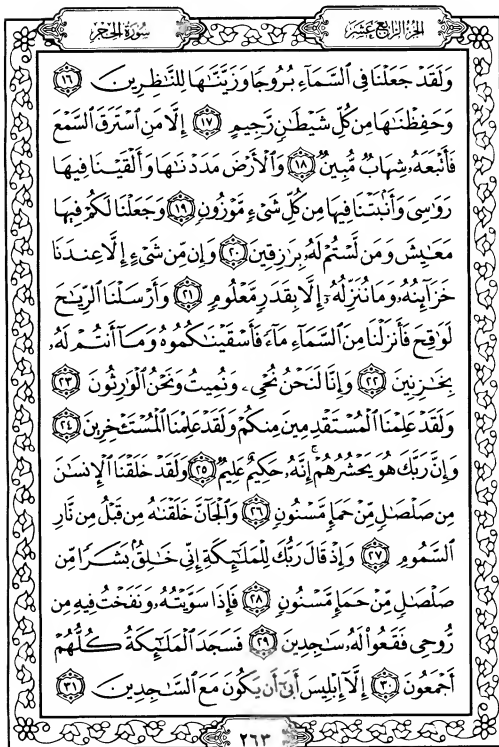 سُورَةُ الحِجر
الجُزءُ الرَّابِعَ عَشَرَ
وَلَقَدْ جَعَلْنَا فِي السَّمَآءِ بُرُوجًا وَزَيَّنَّـٰهَا لِلنَّـٰظِرِينَ ١٦
وَحَفِظْنَـٰهَا مِن كُلِّ شَيْطَـٰنٍ رَّجِيمٍ ١٧ إِلَّا مَنِ ٱسْتَرَقَ ٱلسَّمْعَ
فَأَتْبَعَهُۥ شِهَابٌ مُّبِينٌ ١٨ وَٱلْأَرْضَ مَدَدْنَـٰهَا وَأَلْقَيْنَا فِيهَا
رَوَٰسِىَ وَأَنۢبَتْنَا فِيهَا مِن كُلِّ شَىْءٍ مَّوْزُونٍ ١٩ وَجَعَلْنَا لَكُمْ فِيهَا
مَعَـٰيِشَ وَمَن لَّسْتُمْ لَهُۥ بِرَٰزِقِينَ ٢٠ وَإِن مِّن شَىْءٍ إِلَّا عِندَنَا
خَزَآئِنُهُۥ وَمَا نُنَزِّلُهُۥٓ إِلَّا بِقَدَرٍ مَّعْلُومٍ ٢١ وَأَرْسَلْنَا ٱلرِّيَـٰحَ
لَوَٰقِحَ فَأَنزَلْنَا مِنَ ٱلسَّمَآءِ مَآءً فَأَسْقَيْنَـٰكُمُوهُ وَمَآ أَنتُمْ لَهُۥ
بِخَـٰزِنِينَ ٢٢ وَإِنَّا لَنَحْنُ نُحْىِۦ وَنُمِيتُ وَنَحْنُ ٱلْوَٰرِثُونَ ٢٣
وَلَقَدْ عَلِمْنَا ٱلْمُسْتَقْدِمِينَ مِنكُمْ وَلَقَدْ عَلِمْنَا ٱلْمُسْتَـْٔخِرِينَ ٢٤
وَإِنَّ رَبَّكَ هُوَ يَحْشُرُهُمْ ۚ إِنَّهُۥ حَكِيمٌ عَلِيمٌ ٢٥ وَلَقَدْ خَلَقْنَا ٱلْإِنسَـٰنَ
مِن صَلْصَـٰلٍ مِّنْ حَمَإٍ مَّسْنُونٍ ٢٦ وَٱلْجَآنَّ خَلَقْنَـٰهُ مِن قَبْلُ مِن نَّارِ
ٱلسَّمُومِ ٢٧ وَإِذْ قَالَ رَبُّكَ لِلْمَلَـٰٓئِكَةِ إِنِّى خَـٰلِقٌۢ بَشَرًا مِّن
صَلْصَـٰلٍ مِّنْ حَمَإٍ مَّسْنُونٍ ٢٨ فَإِذَا سَوَّيْتُهُۥ وَنَفَخْتُ فِيهِ مِن
رُّوحِى فَقَعُوا۟ لَهُۥ سَـٰجِدِينَ ٢٩ فَسَجَدَ ٱلْمَلَـٰٓئِكَةُ كُلُّهُمْ
أَجْمَعُونَ ٣٠ إِلَّآ إِبْلِيسَ أَبَىٰٓ أَن يَكُونَ مَعَ ٱلسَّـٰجِدِينَ ٣١
٢٦٣